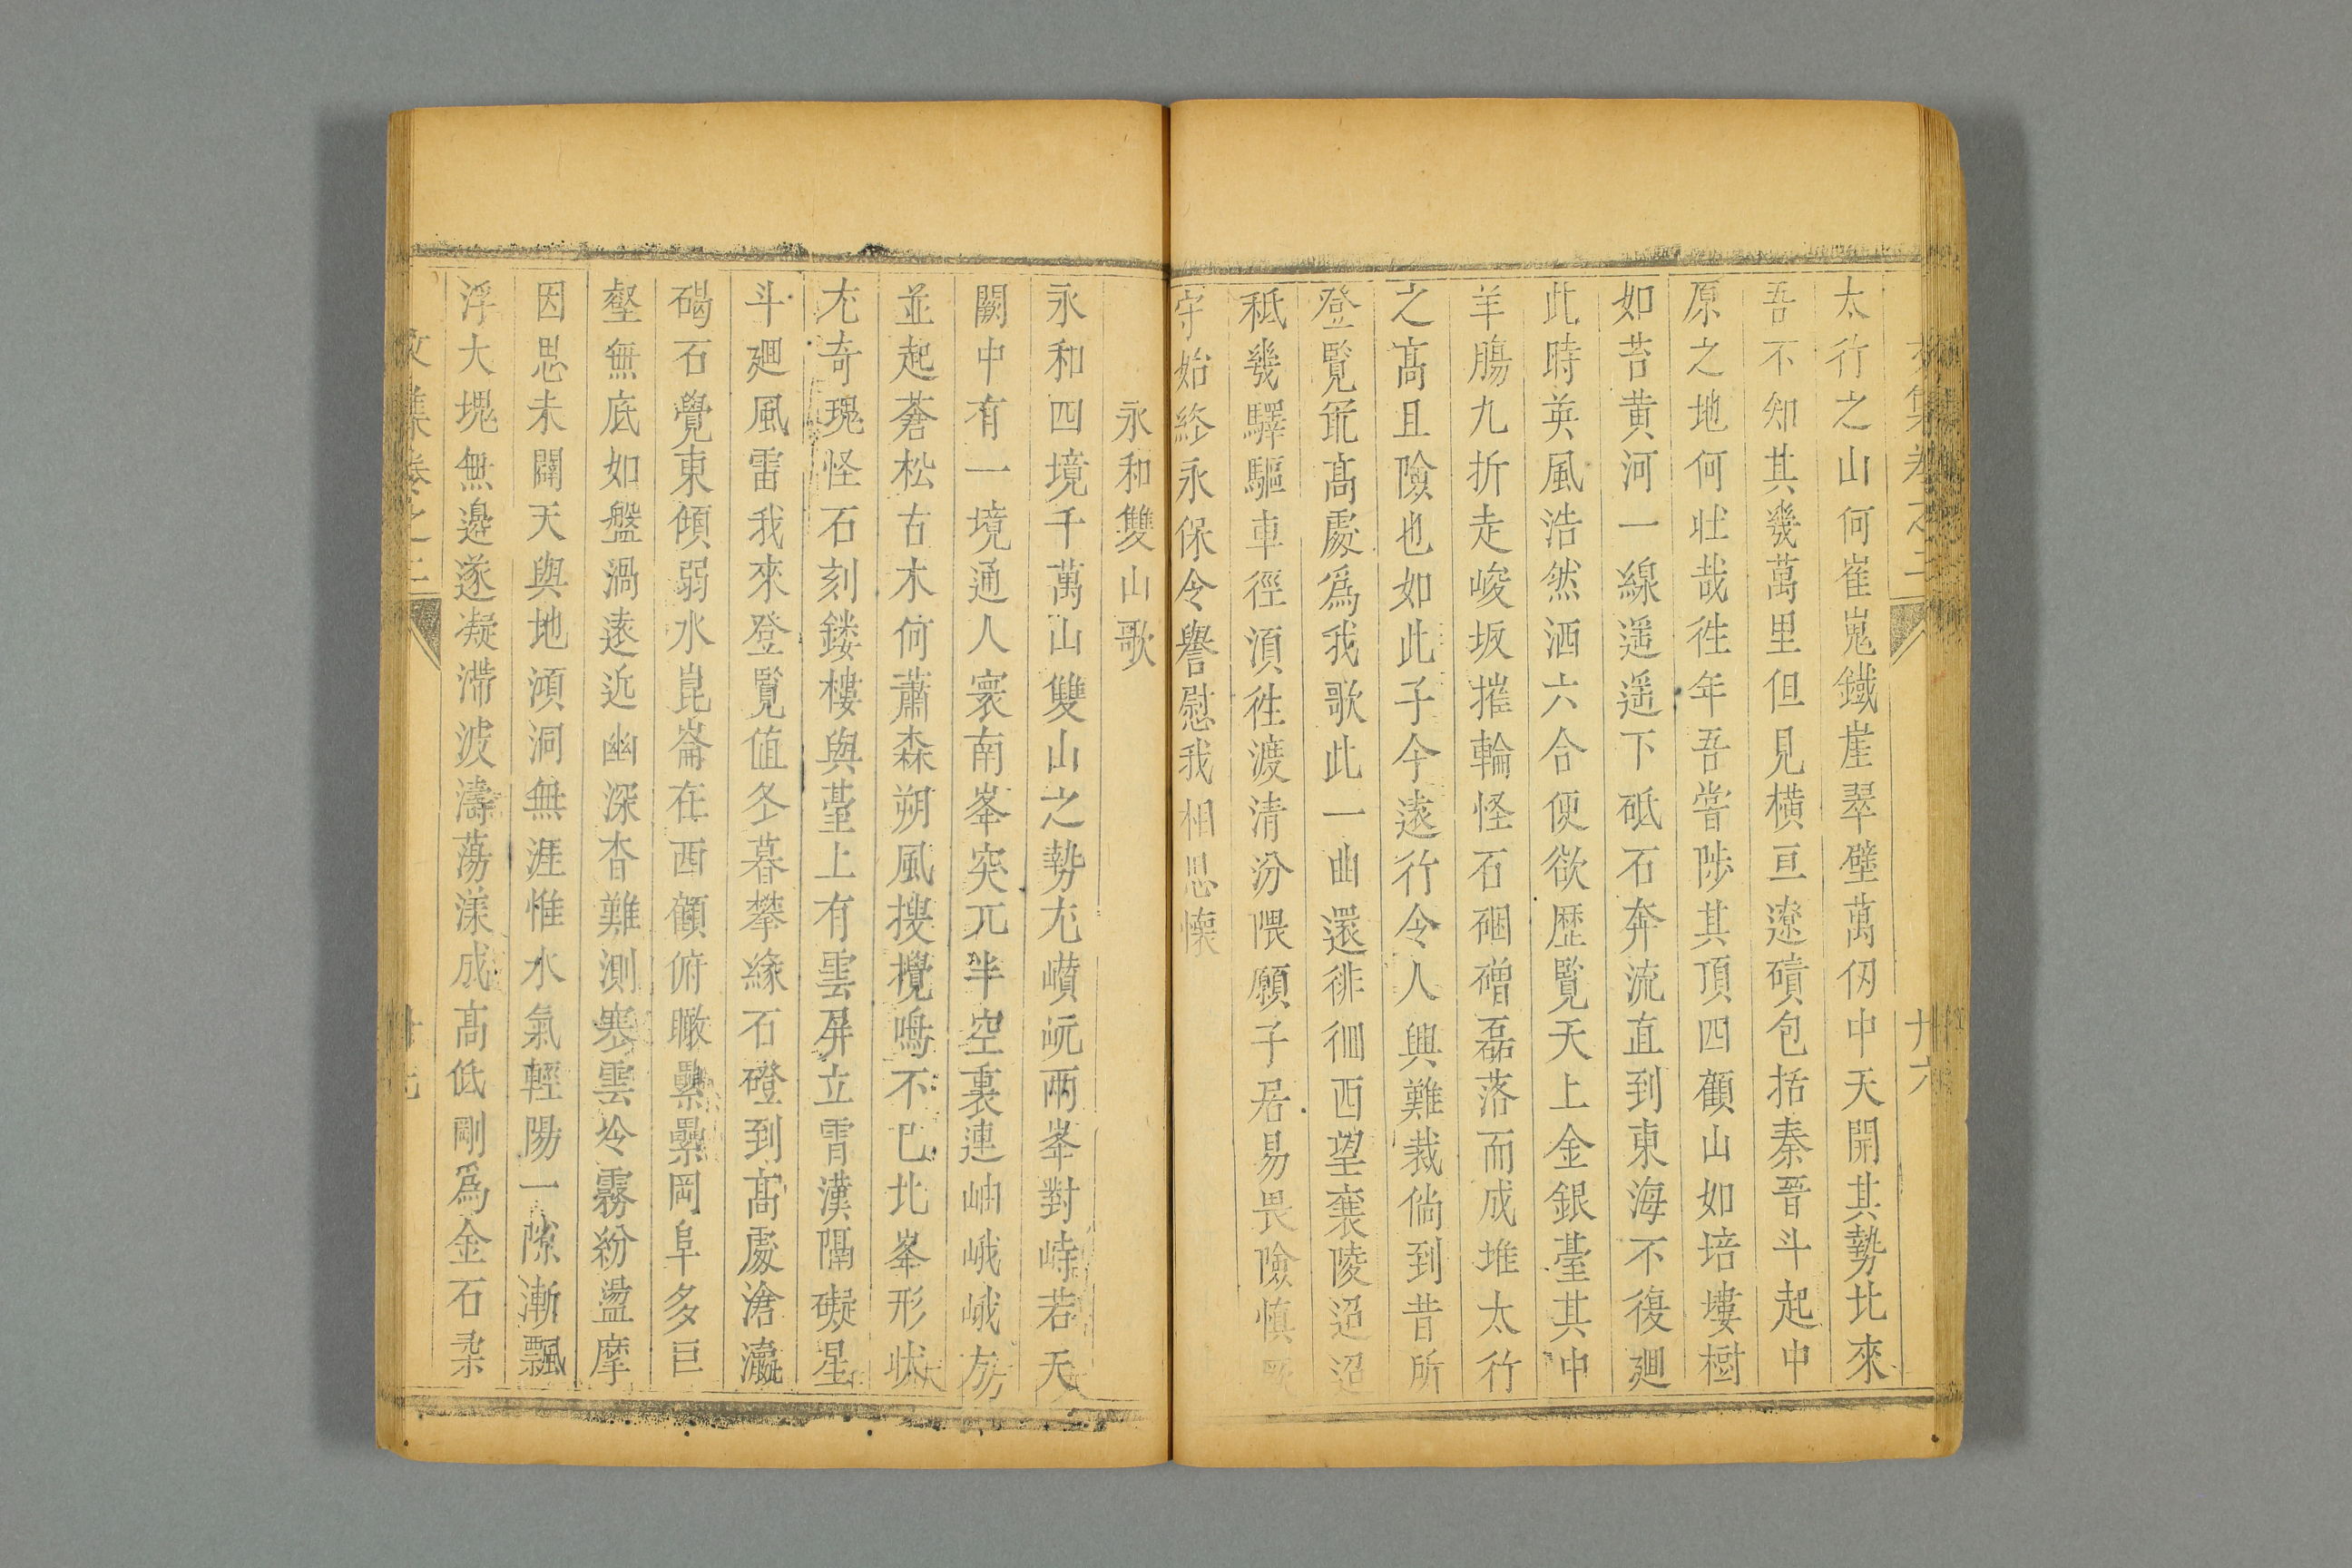 文集卷之二 廿六
太行之山何崔嵬鐵崖翠壁萬仭中天開其勢北來
吾不知其幾萬里但見橫亘遼磧包括秦晉斗起中
原之地何壯哉徃年吾嘗陟其頂四顧山如培塿樹
如苔黄河一線遥遥下砥石奔流直到東海不復廻
此時英風浩然洒六合便欲歴覽天上金銀臺其中
羊膓九折走峻坂摧輪怪石硱磳磊落而成堆太行
之髙且險也如此子今逺行令人興難裁倘到昔所
登覧冣髙處爲我歌此一曲還徘徊西望襄陵迢迢
秪幾驛驅車徑湏徃渡清汾隈願子居易畏險慎
守始終永保令譽慰我相思懷
永和雙山歌
永和四境千萬山雙山之勢尤巑岏兩峯對峙若天
闕中有一境通人寰南峯突兀半空裏連岫峨峨方
並起蒼松古木何蕭森朔風搜攪鳴不已北峯形狀
尤奇瑰怪石刻鏤樓與臺上有雲屏立霄漢隔礙星
斗廻風雷我來登覧值冬暮攀緣石磴到髙處滄瀛
碣石覺東傾弱水崑崙在西顧俯瞰纍纍岡阜多巨
壑無底如盤渦逺近幽深杳難測寒雲冷霧紛盪摩
因思未闢天與地澒洞無涯惟水氣輕陽一隙漸飄
浮大塊無邊遂凝滯波濤蕩漾成髙低剛爲金石柔
文集卷之二